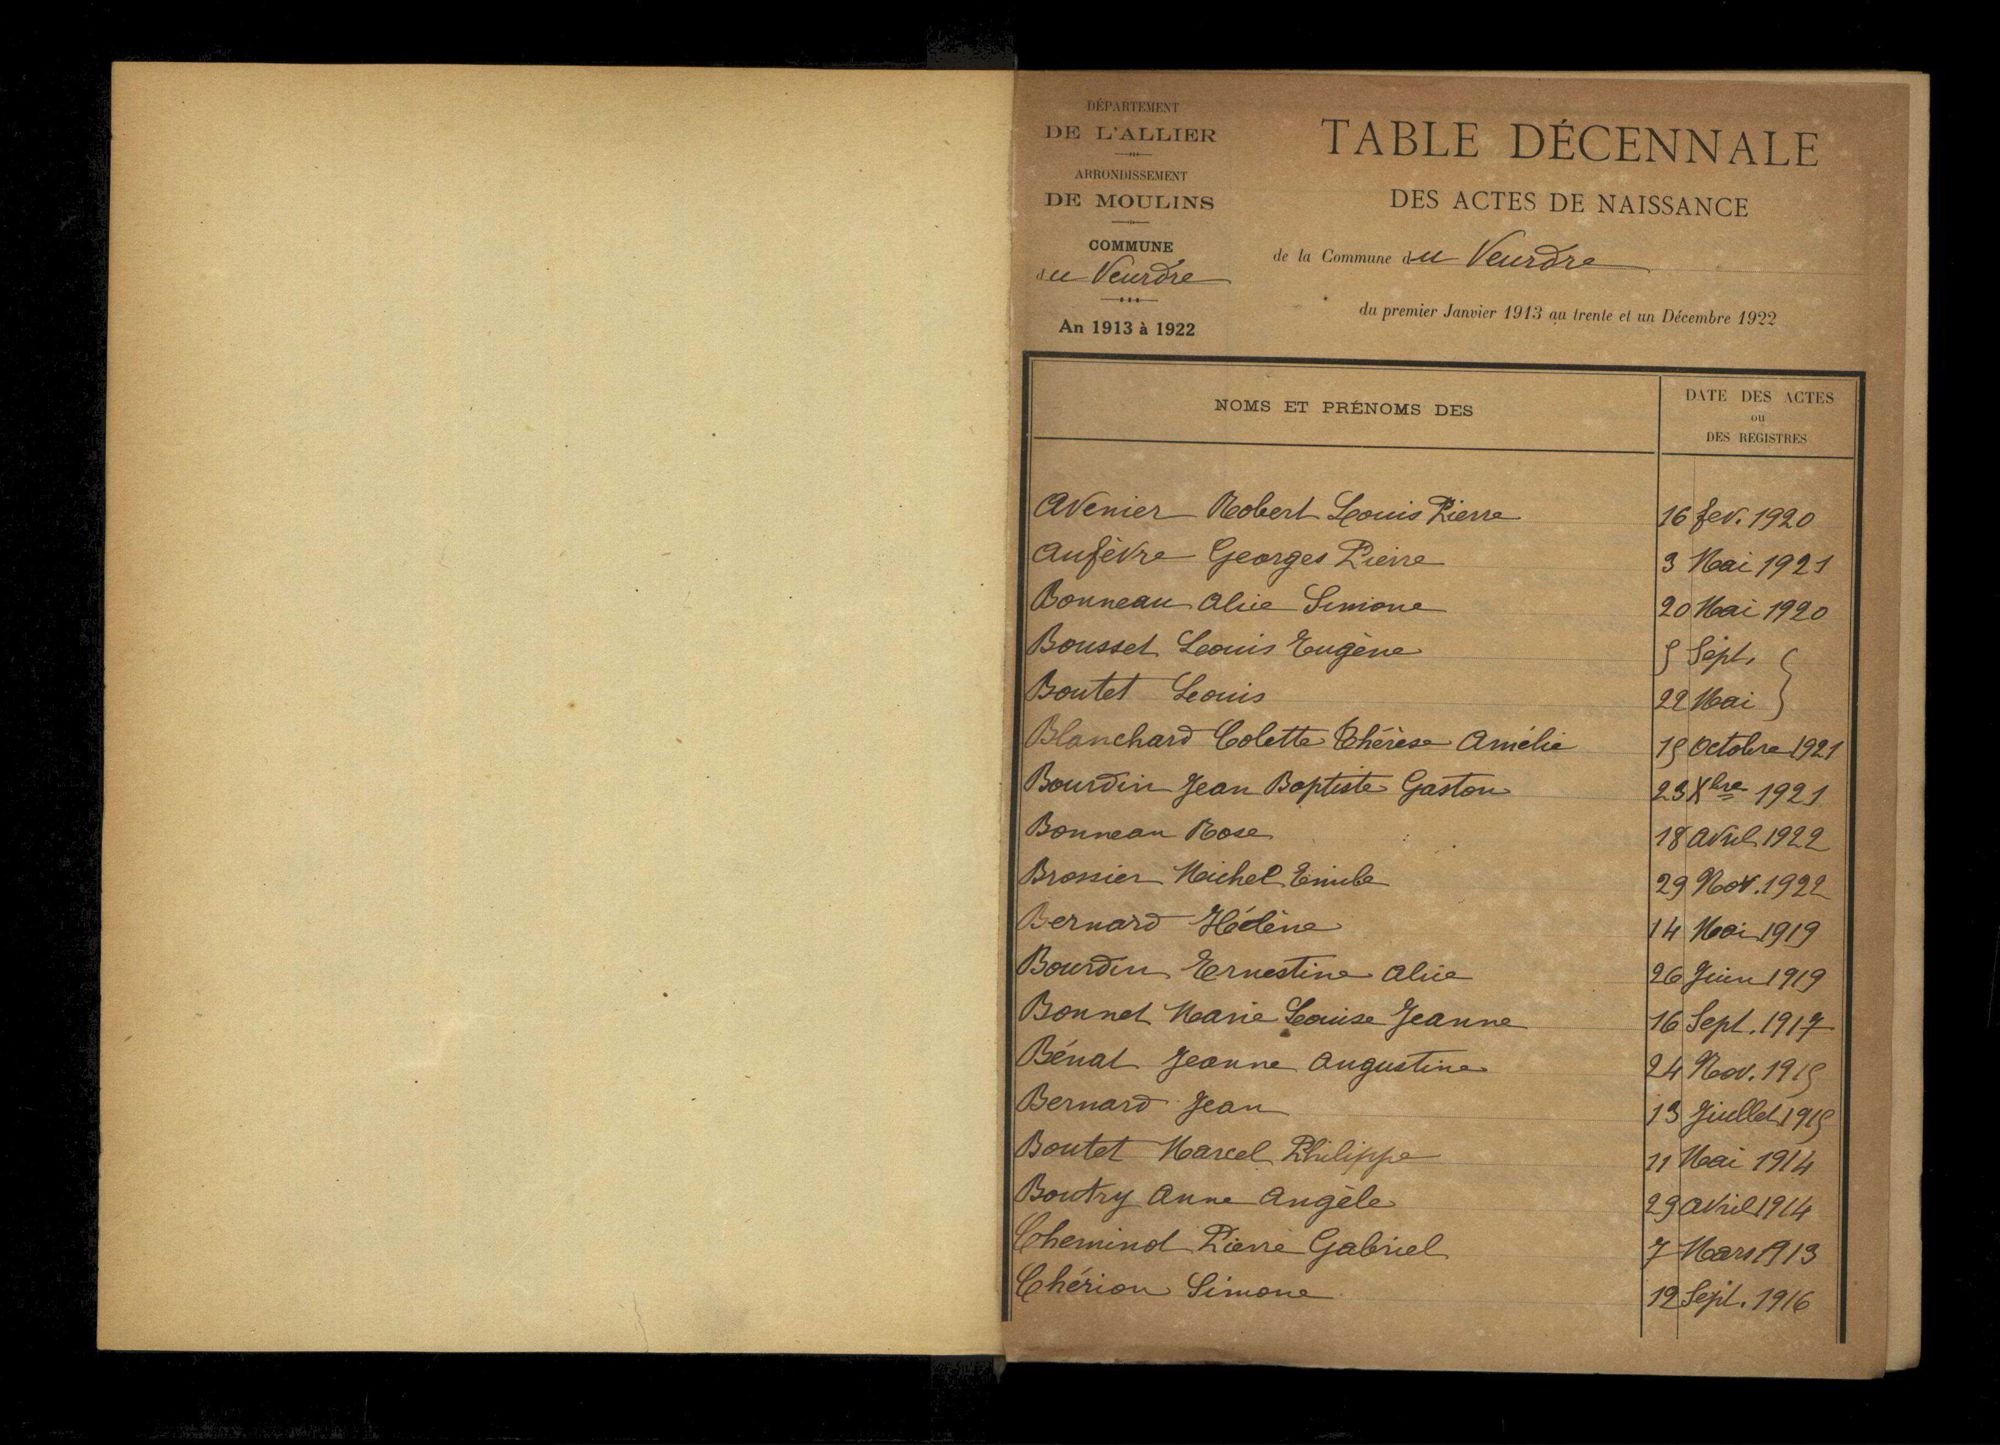 DÉPARTEMENT
DE L'ALLIER
ARRONDISSEMENT
DE MOULINS
COMMUNE
du Veurdre
An 1913 à 1922
TABLE DÉCENNALE
DES ACTES DE NAISSANCE
de la Commune du Veurdre
du premier Janvier 1913 au trente et un Décembre 1922
NOMS ET PRÉNOMS DES
DATE DES ACTES
ou
DES REGISTRES
Avenier Robert Louis Pierre 16 fev. 1920
Aufèvre Georges Pierre 3 Mai 1921
Bonneau Alice Simone 20 Mai 1920
Bousset Louis Eugène 5 Sept.
Boutet Louis 22 Mai
Blanchard Colette Thérèse Amélie 15 Octobre 1921
Bourdin Jean Baptiste Gaston 23 Xbre 1921
Bonneau Rose 18 Avril 1922
Brossier Michel Emile 29 Nov. 1922
Bernard Hélène 14 Mai 1919
Bourdin Ernestine Alice 26 Juin 1919
Bonnet Marie Louise Jeanne 16 Sept. 1917
Bénat Jeanne Augustine 24 Nov. 1915
Bernard Jean 13 Juillet 1915
Boutet Marcel Philippe 11 Mai 1914
Boutry Anne Angèle 29 Avril 1914
Cheminot Pierre Gabriel 7 Mars 1913
Chérion Simone 12 Sept. 1916